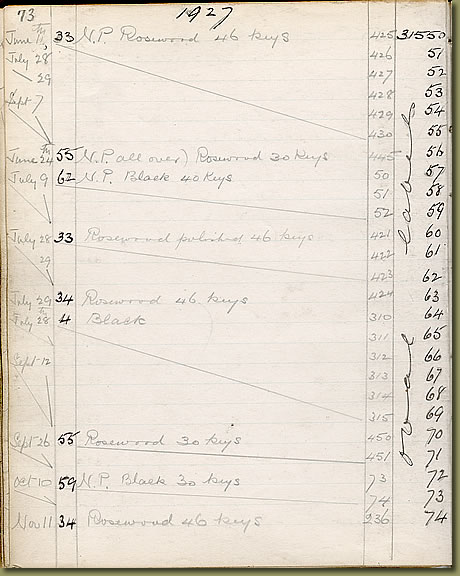 73 1927
June 33 N.P. Rosewood 46 keys 425 31550
July 28 426 51
29 427 52
Sept 7 428 53
429 54
430 55
June 24 55 N.P. all over) Rosewood 30 keys 445 56
July 9 62 N.P. Black 40 keys 50 57
51 58
52 59
July 28 33 Rosewood polished 46 keys 421 60
29 422 61
423 62
July 29 34 Rosewood 46 keys 424 63
July 28 4 Black 310 64
311 65
Sept 12 312 66
313 67
314 68
315 69
Sept 26 55 Rosewood 30 keys 450 70
451 71
Oct 10 59 N.P. Black 30 keys 73 72
74 73
Nov 11 34 Rosewood 46 keys 236 74
oval labels